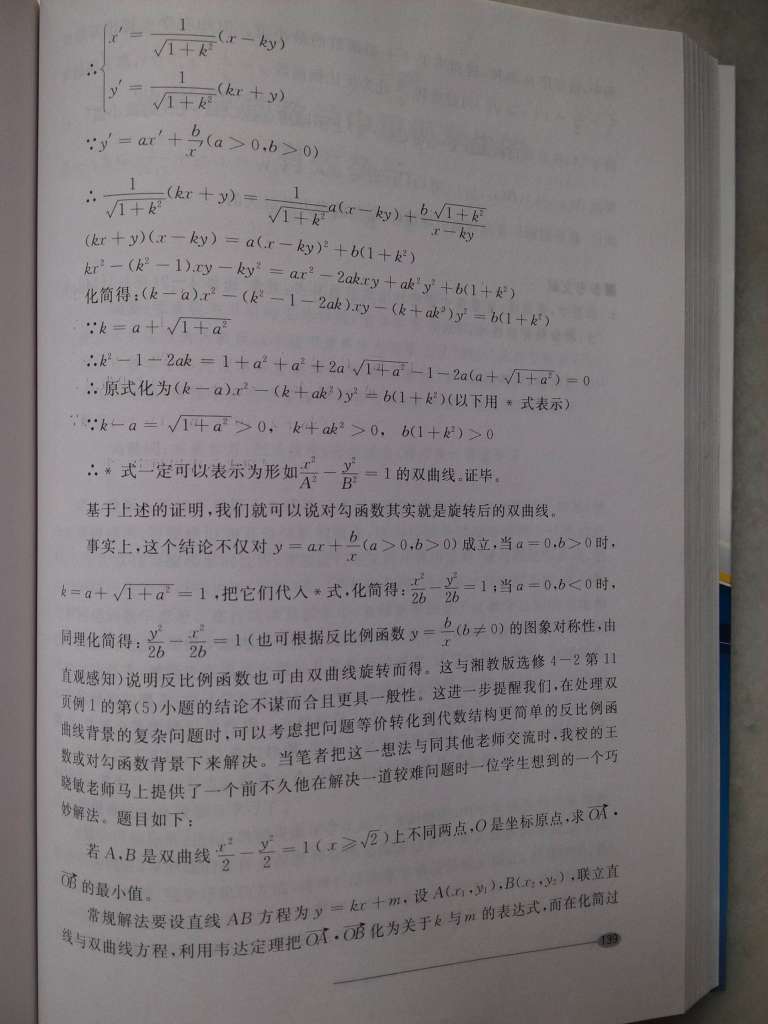 ∴{x′ = 1/√(1+k²) (x − ky)
y′ = 1/√(1+k²) (kx + y)
∵y′ = ax′ + b/x′ (a > 0,b > 0)
∴ 1/√(1+k²) (kx + y) = 1/√(1+k²) a(x − ky) + b√(1+k²)/(x−ky)
(kx + y)(x − ky) = a(x − ky)² + b(1+k²)
kx² − (k² − 1)xy − ky² = ax² − 2akxy + ak²y² + b(1+k²)
化简得:(k − a)x² − (k² − 1 − 2ak)xy − (k + ak²)y² = b(1+k²)
∵k = a + √(1+a²)
∴k² − 1 − 2ak = 1 + a² + a² + 2a√(1+a²) − 1 − 2a(a + √(1+a²)) = 0
∴原式化为(k − a)x² − (k + ak²)y² = b(1+k²)(以下用 * 式表示)
∵k − a = √(1+a²) > 0, k + ak² > 0, b(1+k²) > 0
∴ * 式一定可以表示为形如x²/A² − y²/B² = 1的双曲线。证毕。
基于上述的证明,我们就可以说对勾函数其实就是旋转后的双曲线。
事实上,这个结论不仅对 y = ax + b/x (a > 0,b > 0) 成立,当 a = 0,b > 0 时,
k = a + √(1+a²) = 1 ,把它们代入 * 式,化简得: x²/2b − y²/2b = 1;当 a = 0,b < 0 时,
同理化简得: y²/2b − x²/2b = 1 (也可根据反比例函数 y = b/x (b ≠ 0) 的图象对称性,由
直观感知)说明反比例函数也可由双曲线旋转而得。这与湘教版选修 4−2 第 11
页例 1 的第(5)小题的结论不谋而合且更具一般性。这进一步提醒我们,在处理双
曲线背景的复杂问题时,可以考虑把问题等价转化到代数结构更简单的反比例函
数或对勾函数背景下来解决。当笔者把这一想法与同其他老师交流时,我校的王
晓敏老师马上提供了一个前不久他在解决一道较难问题时一位学生想到的一个巧
妙解法。题目如下:
若 A,B 是双曲线 x²/2 − y²/2 = 1 (x ⩾ √2) 上不同两点,O 是坐标原点,求 OA→ ·
OB→ 的最小值。
常规解法要设直线 AB 方程为 y = kx + m, 设 A(x₁,y₁),B(x₂,y₂) ,联立直
线与双曲线方程,利用韦达定理把 OA→ · OB→ 化为关于 k 与 m 的表达式,而在化简过
139